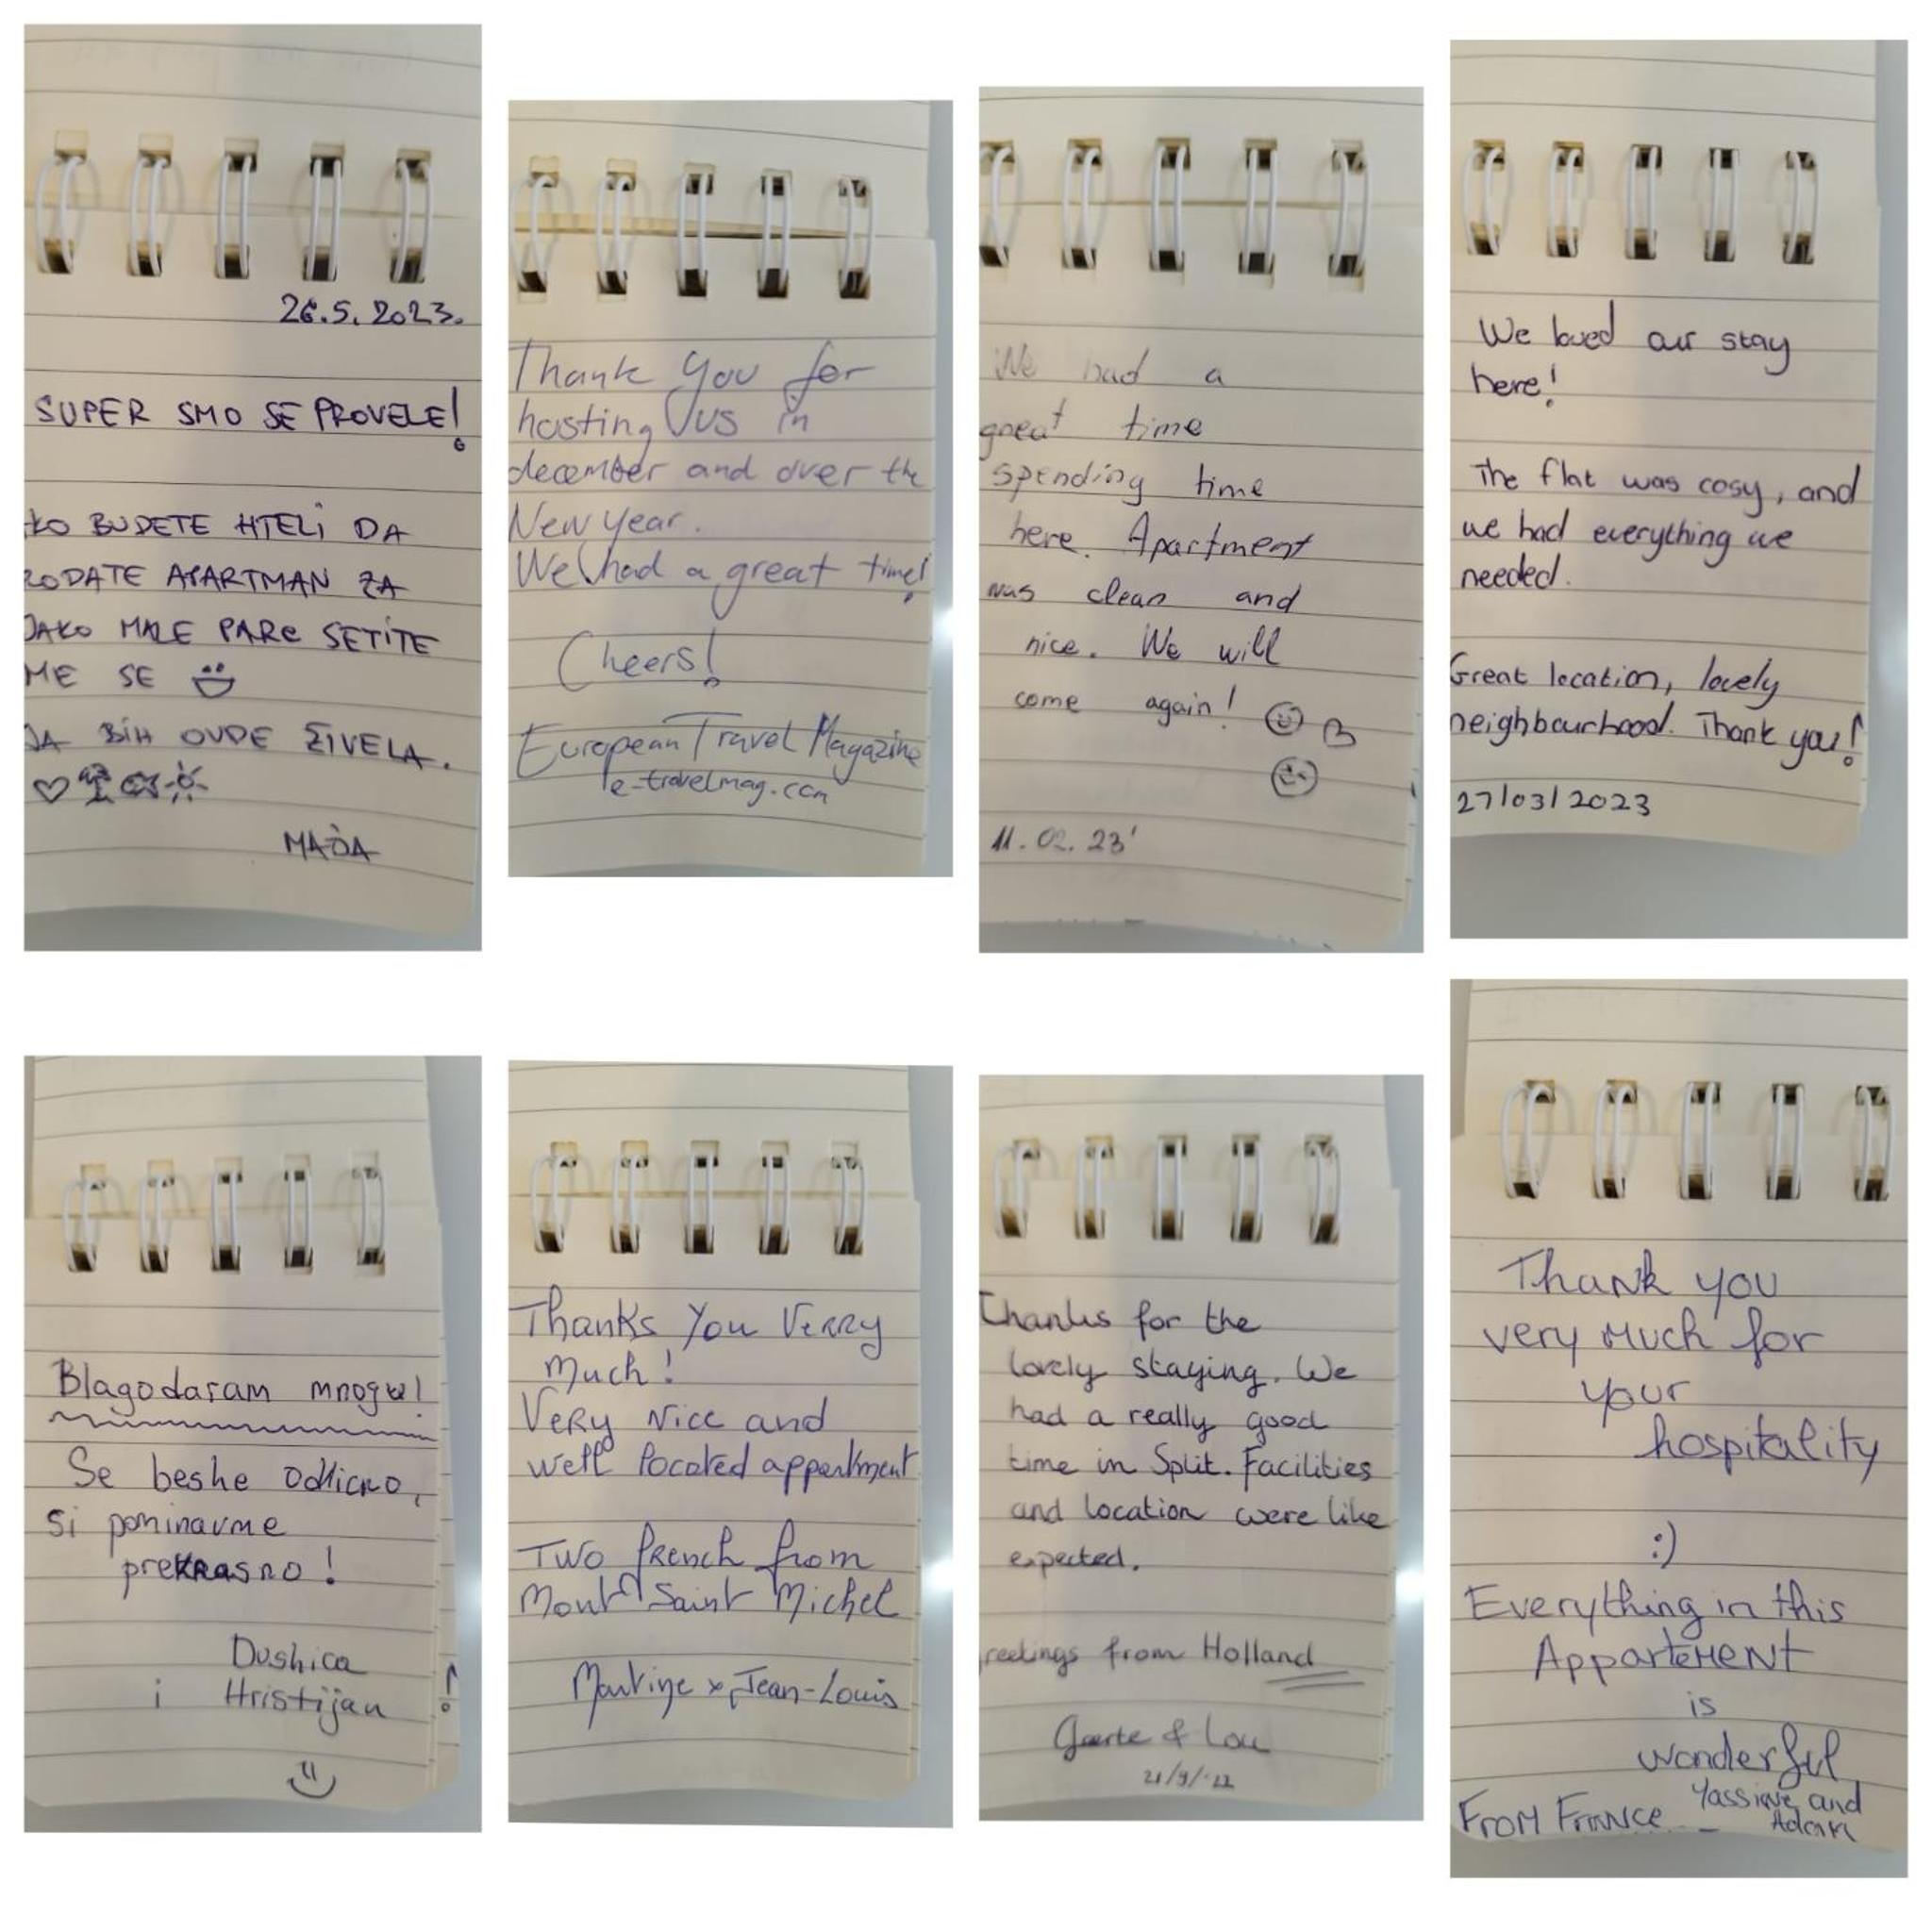 26.5.2023.
SUPER SMO SE PROVELE!
KO BUDETE HTELI DA
RODATE APARTMAN ZA
JAKO MALE PARE SETITE
ME SE
JA BIH OVDE ŽIVELA.
Thank you for
hosting us in
december and over the
New year.
We had a great time!
Cheers!
European Travel Magazine
e-travelmag.com
We had a
great time
spending time
here. Apartment
was clean and
nice. We will
come again!
11.02.23'
We loved our stay
here!
The flat was cosy, and
we had everything we
needed.
Great location, lovely
neighbourhood. Thank you!
27/03/2023
Blagodaram mnogu!
Se beshe odlicno,
si pominavme
prekrasno!
Dushica
i Hristijan
Thanks You Verry
Much!
Very Nice and
well located appartment
Two french from
Mont Saint Michel
Martine x Jean-Louis
Thanks for the
lovely staying. We
had a really good
time in Split. Facilities
and location were like
expected.
reetings from Holland
& Lou
21/9/'22
Thank you
very much for
your
hospitality
:)
Everything in this
Appartement
is
wonderful
From France Yassine and